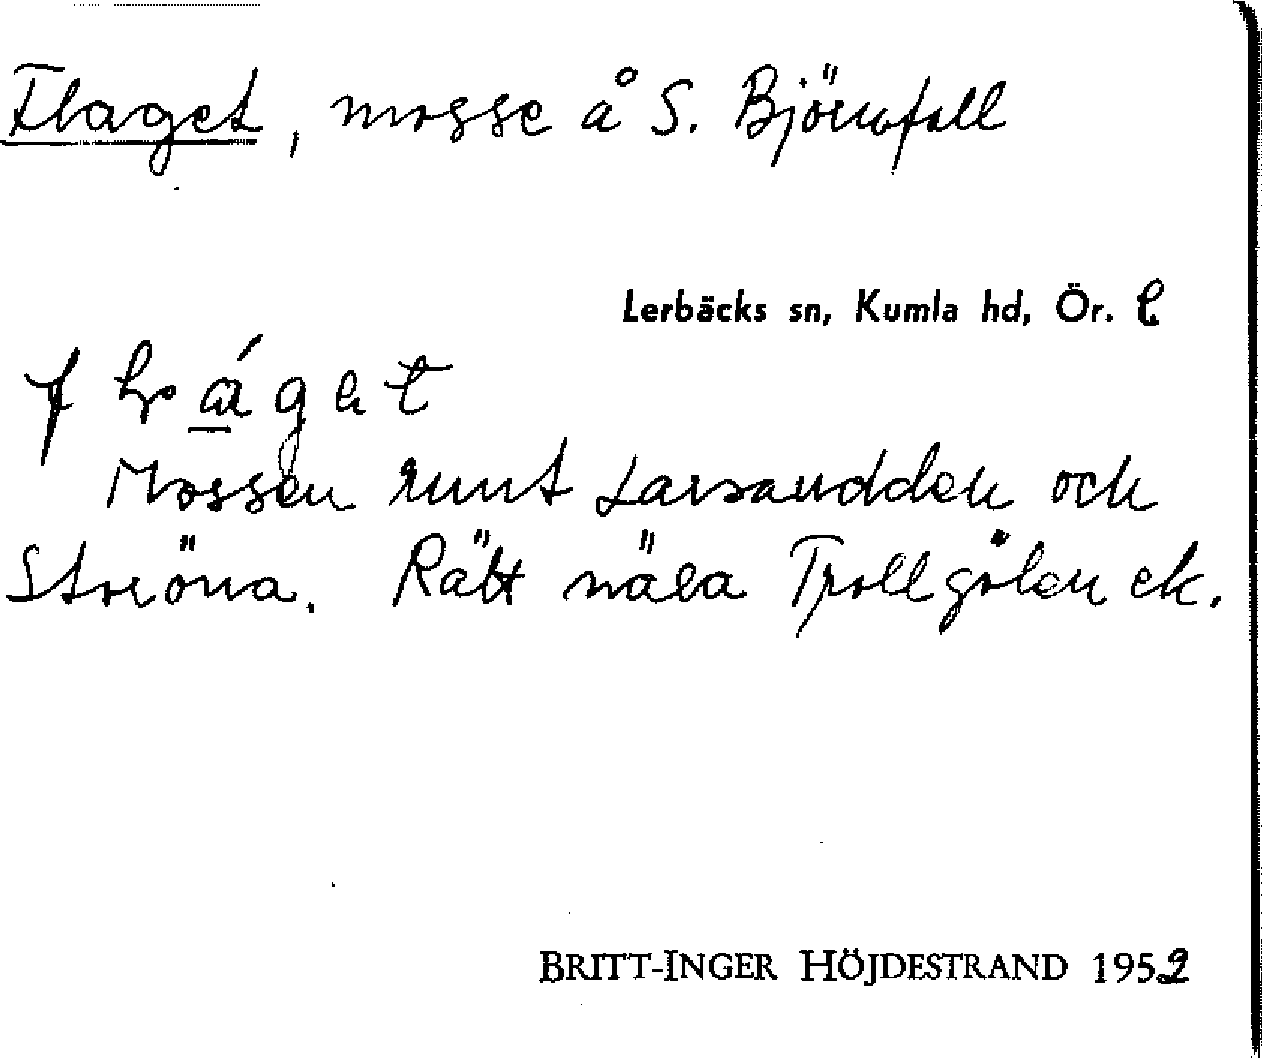 Flaget, mosse å S. Björnfall
Lerbäcks sn, Kumla hd, Ör. l.
Mossen runt Larsaudden och
Storöna. Rätt nära Trollgölen ek.
BRITT-INGER HÖJDESTRAND 1952